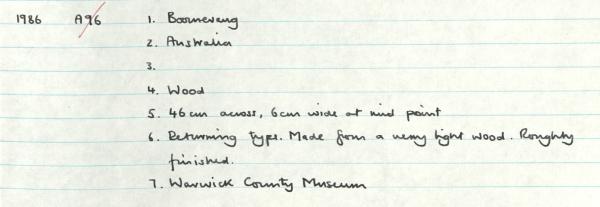 1986 A96 1. Boomerang
2. Australia
3.
4. Wood
5. 46cm across, 6cm wide at mid point
6. Returning type. Made from a very light wood. Roughly
finished.
7. Warwick County Museum